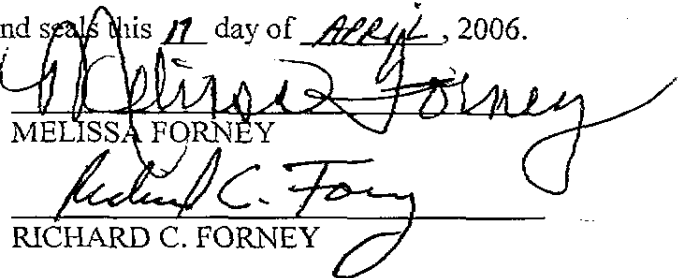 nd seals this 17 day of APRIL, 2006.
Melissa Forney
MELISSA FORNEY
Richard C. Forney
RICHARD C. FORNEY